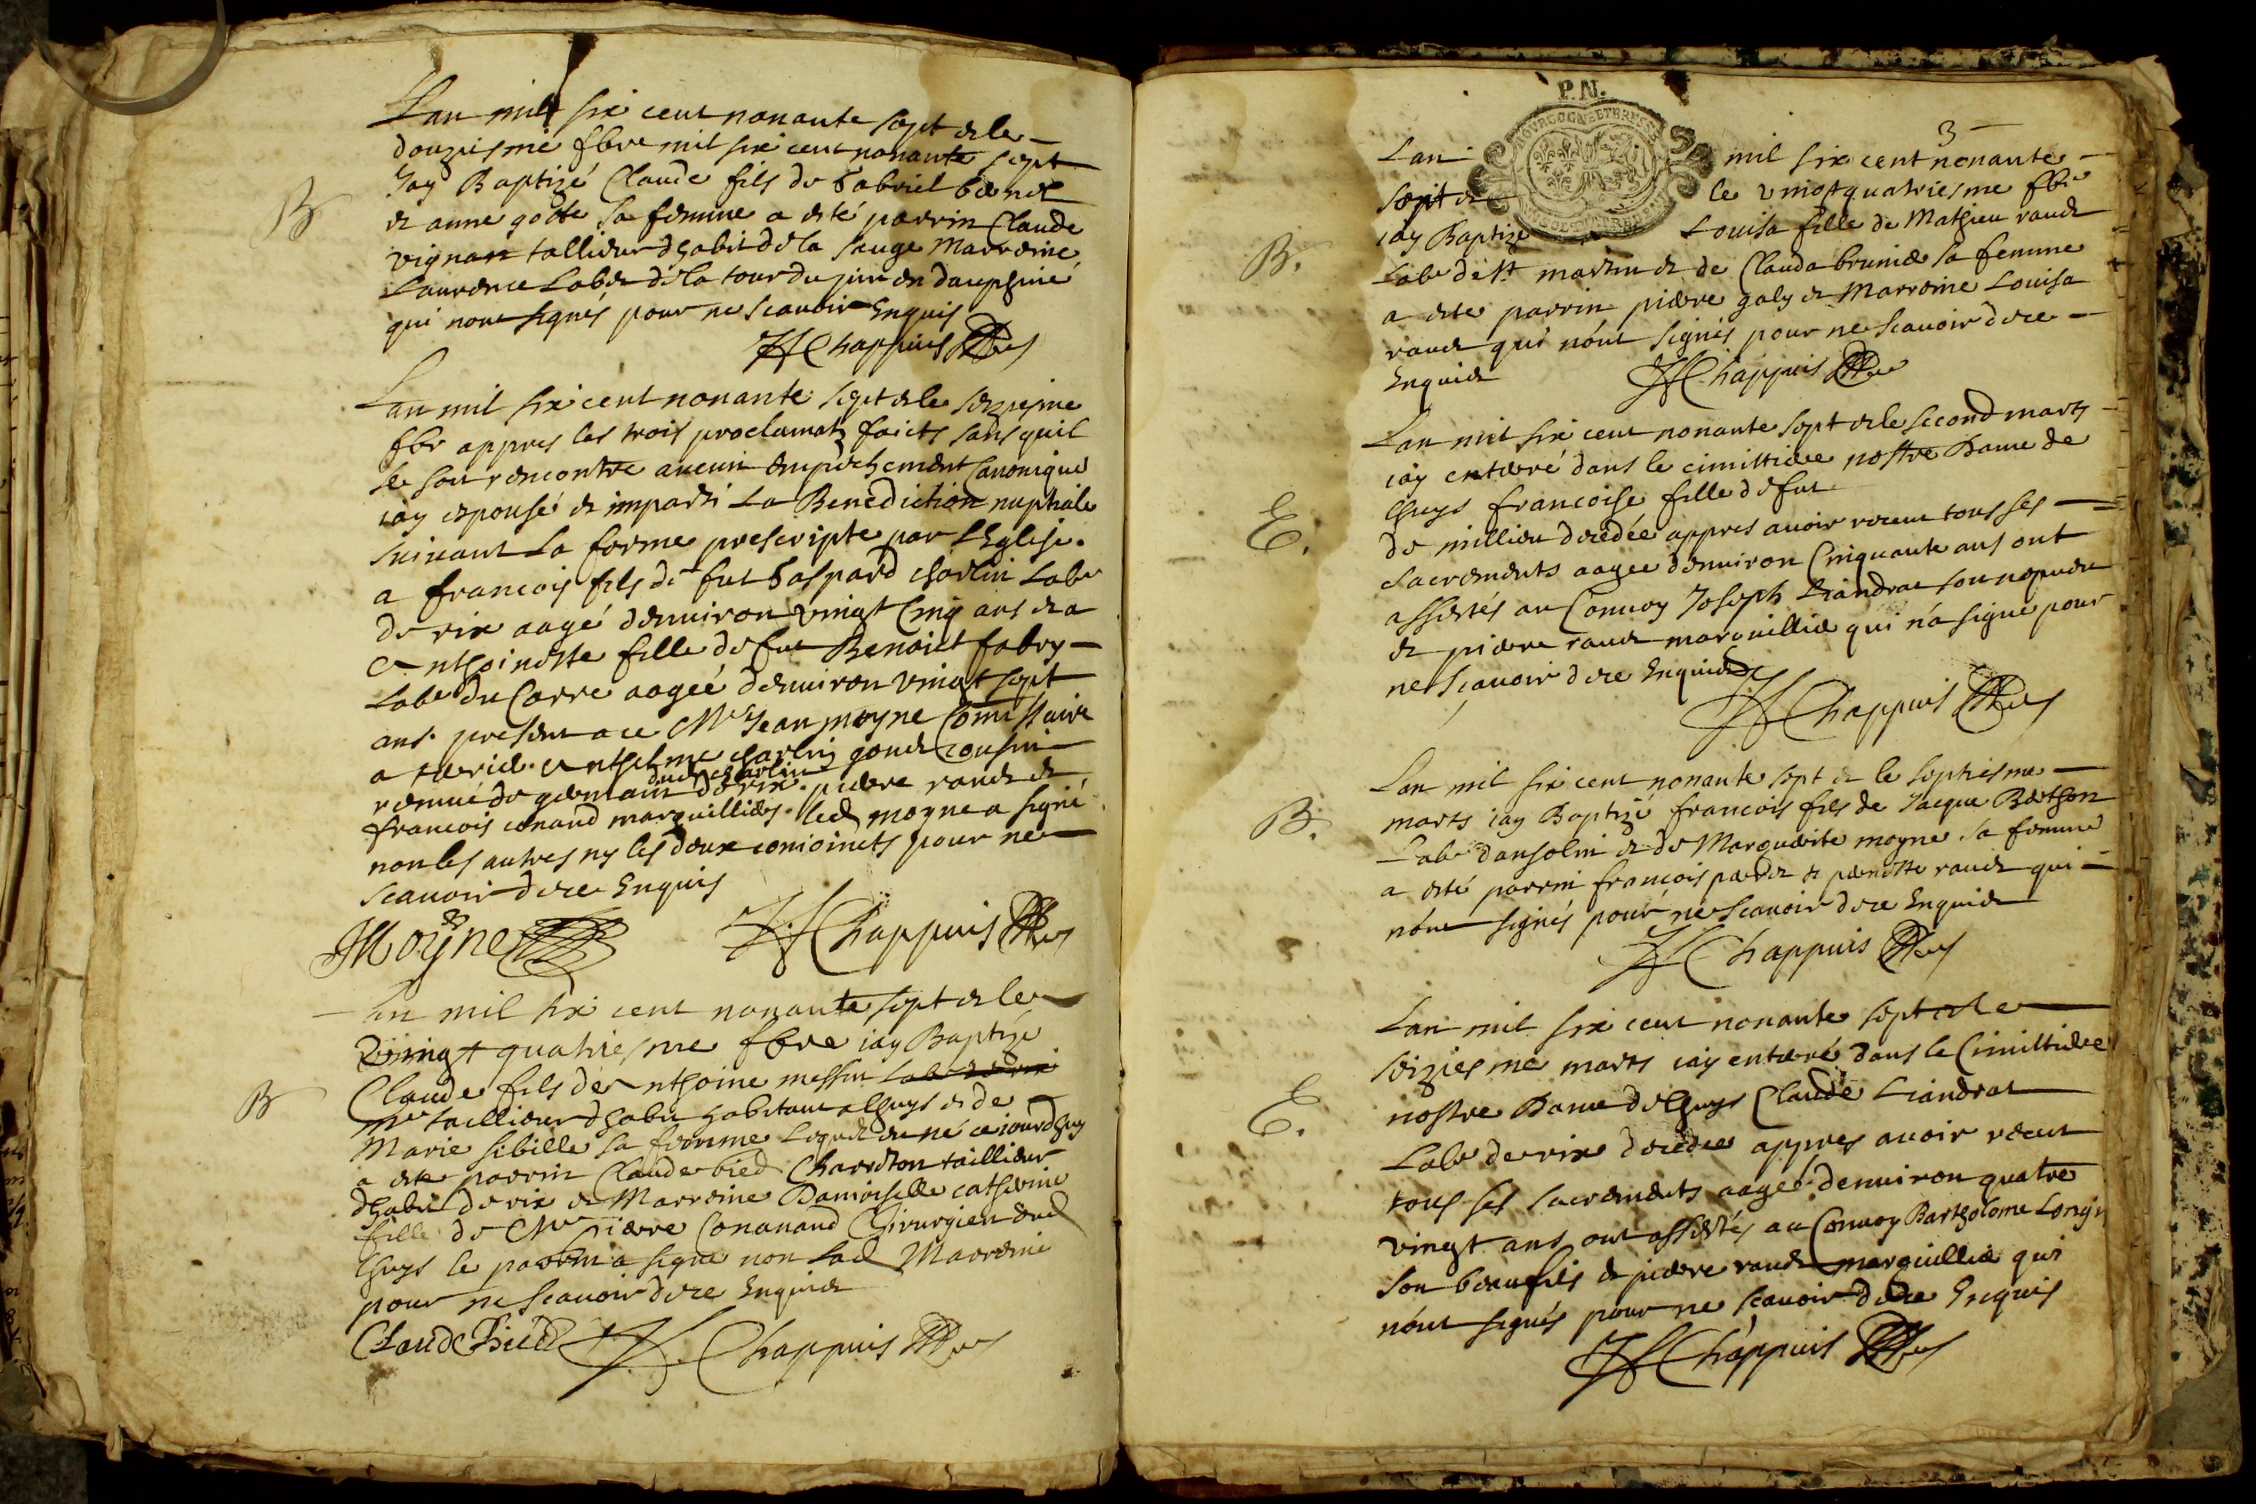 Lan mil six cent nonante sept et le
douziesme fbre mil six cent nonante sept
B
Jay Baptizé Claude fils de Gabriel
et anne gotte sa femme a esté parrin Claude
vignan tallieur dhabit de la sauge Marreine
Laurence Labet de la tour du pin en dauphiné
qui nont signés pour ne scauoir Enquis
Chappuis
Lan mil six cent nonante sept et le seziesme
fbr appres les trois proclamatz faicts sans quil
se soit rencontre aucun empeschement Canonique
iay espousé et imparti La Benediction nuptiale
suiuant La forme prescripte par LEglise.
a francois fils de fut Gaspard charlin Labr
de rix aagé denuiron vingt Cinq ans et a
Anthoinette fille de fut Benoict fabry
Labr du Carre aageé denuiron vingt sept
ans. present a ce Mre Jean moyne Comissaire
a terrier Anthelme charlin gonet Cousin
dud charlin
remué de germain de rix. pierre raude et
francois conand marguilliers. led moyne a signé
non les autres ny les deux conioincts pour ne
scauoir dece Enquis
JMoÿne Chappuis
Lan mil six cent nonante sept et le
Vingt quatriesme fbre iay Baptizé
B
Claude fils de Anthoine messin Labr de rix
mre taillieur dhabit habitant a Lhuys et de
Marie sibille sa femme Lequel est né ce iourdhuy
a este parrin Claude bied Charreton taillieur
dhabit de rix et Marreine Damoiselle catherine
fille de Mre pierre Conanaud Chirurgien dud
Lhuys le parrin a signe non Lad Marreine
pour ne scauoir dece Enquise
Claude Bied Chappuis
P.N.
3
Lan mil six cent nonante
sept et le vingtquatriesme fbre
B.
iay Baptizé Louisa fille de Mathieu raude
Labr de st martin et de Clauda brunie sa femme
a este parrin pierre galy et Marreine Louisa
raude qui nont signés pour ne scauoir dece
Enquis
Chappuis
Lan mil six cent nonante sept et le second marts
iay enterré dans le cimittiere nostre Dame de
E.
Lhuys francoise fille de fut
de millieu decedée appres auoir receut tous ses
sacrements aagee denuiron Cinquante ans ont
assistés au Conuoy Joseph Liandrat son nepueu
et pierre raude marguillier qui na signe pour
ne scauoir dece Enquis
Chappuis
Lan mil six cent nonante sept et le septiesme
B.
marts iay Baptizé francois fils de Jacque Berthon
Labr dansolin et de Marguerite moyne sa femme
a esté parrin francois et pernette raude qui
nont signés pour ne scauoir dece Enquis
Chappuis
Lan mil six cent nonante sept et le
seiziesme marts iay enterré dans le Cimittiere
E.
nostre Dame de Lhuys Claude Liandrat
Labr de rix decedee appres auoir receut
tous ses sacrements aagee denuiron quatre
vingt ans ont assistés au Conuoy Bartholome Longin
son beaufils et pierre raude marguillier qui
nont signés pour ne scauoir dece Enquis
Chappuis